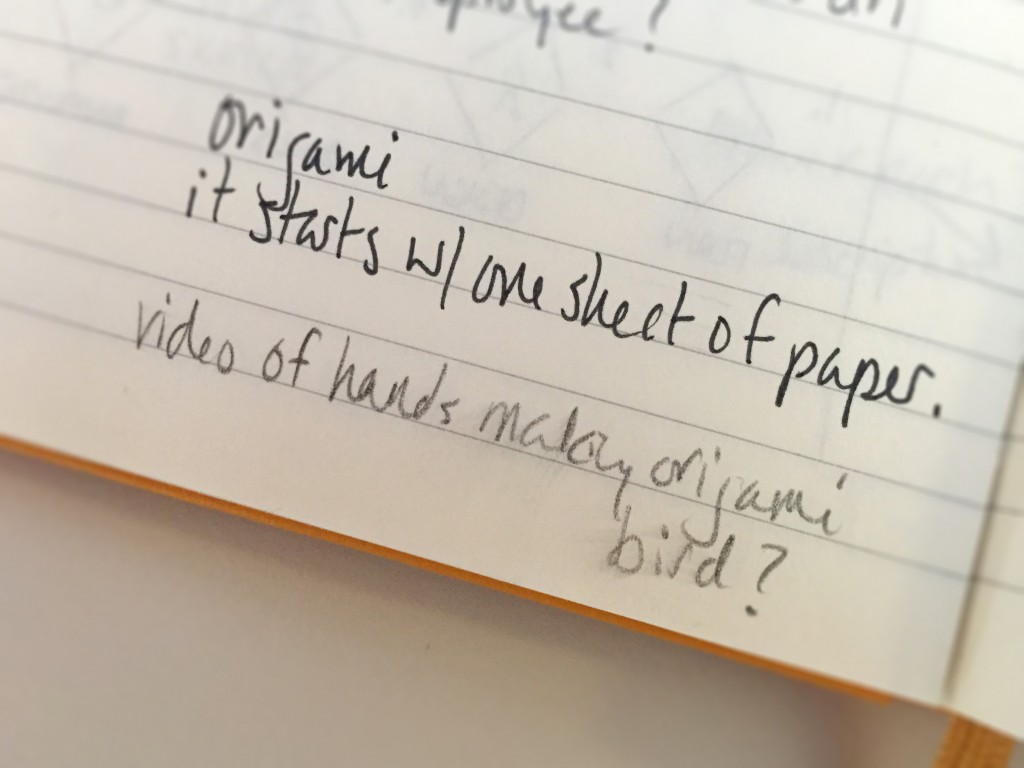 origami
it starts w/ one sheet of paper.
video of hands making origami
bird?